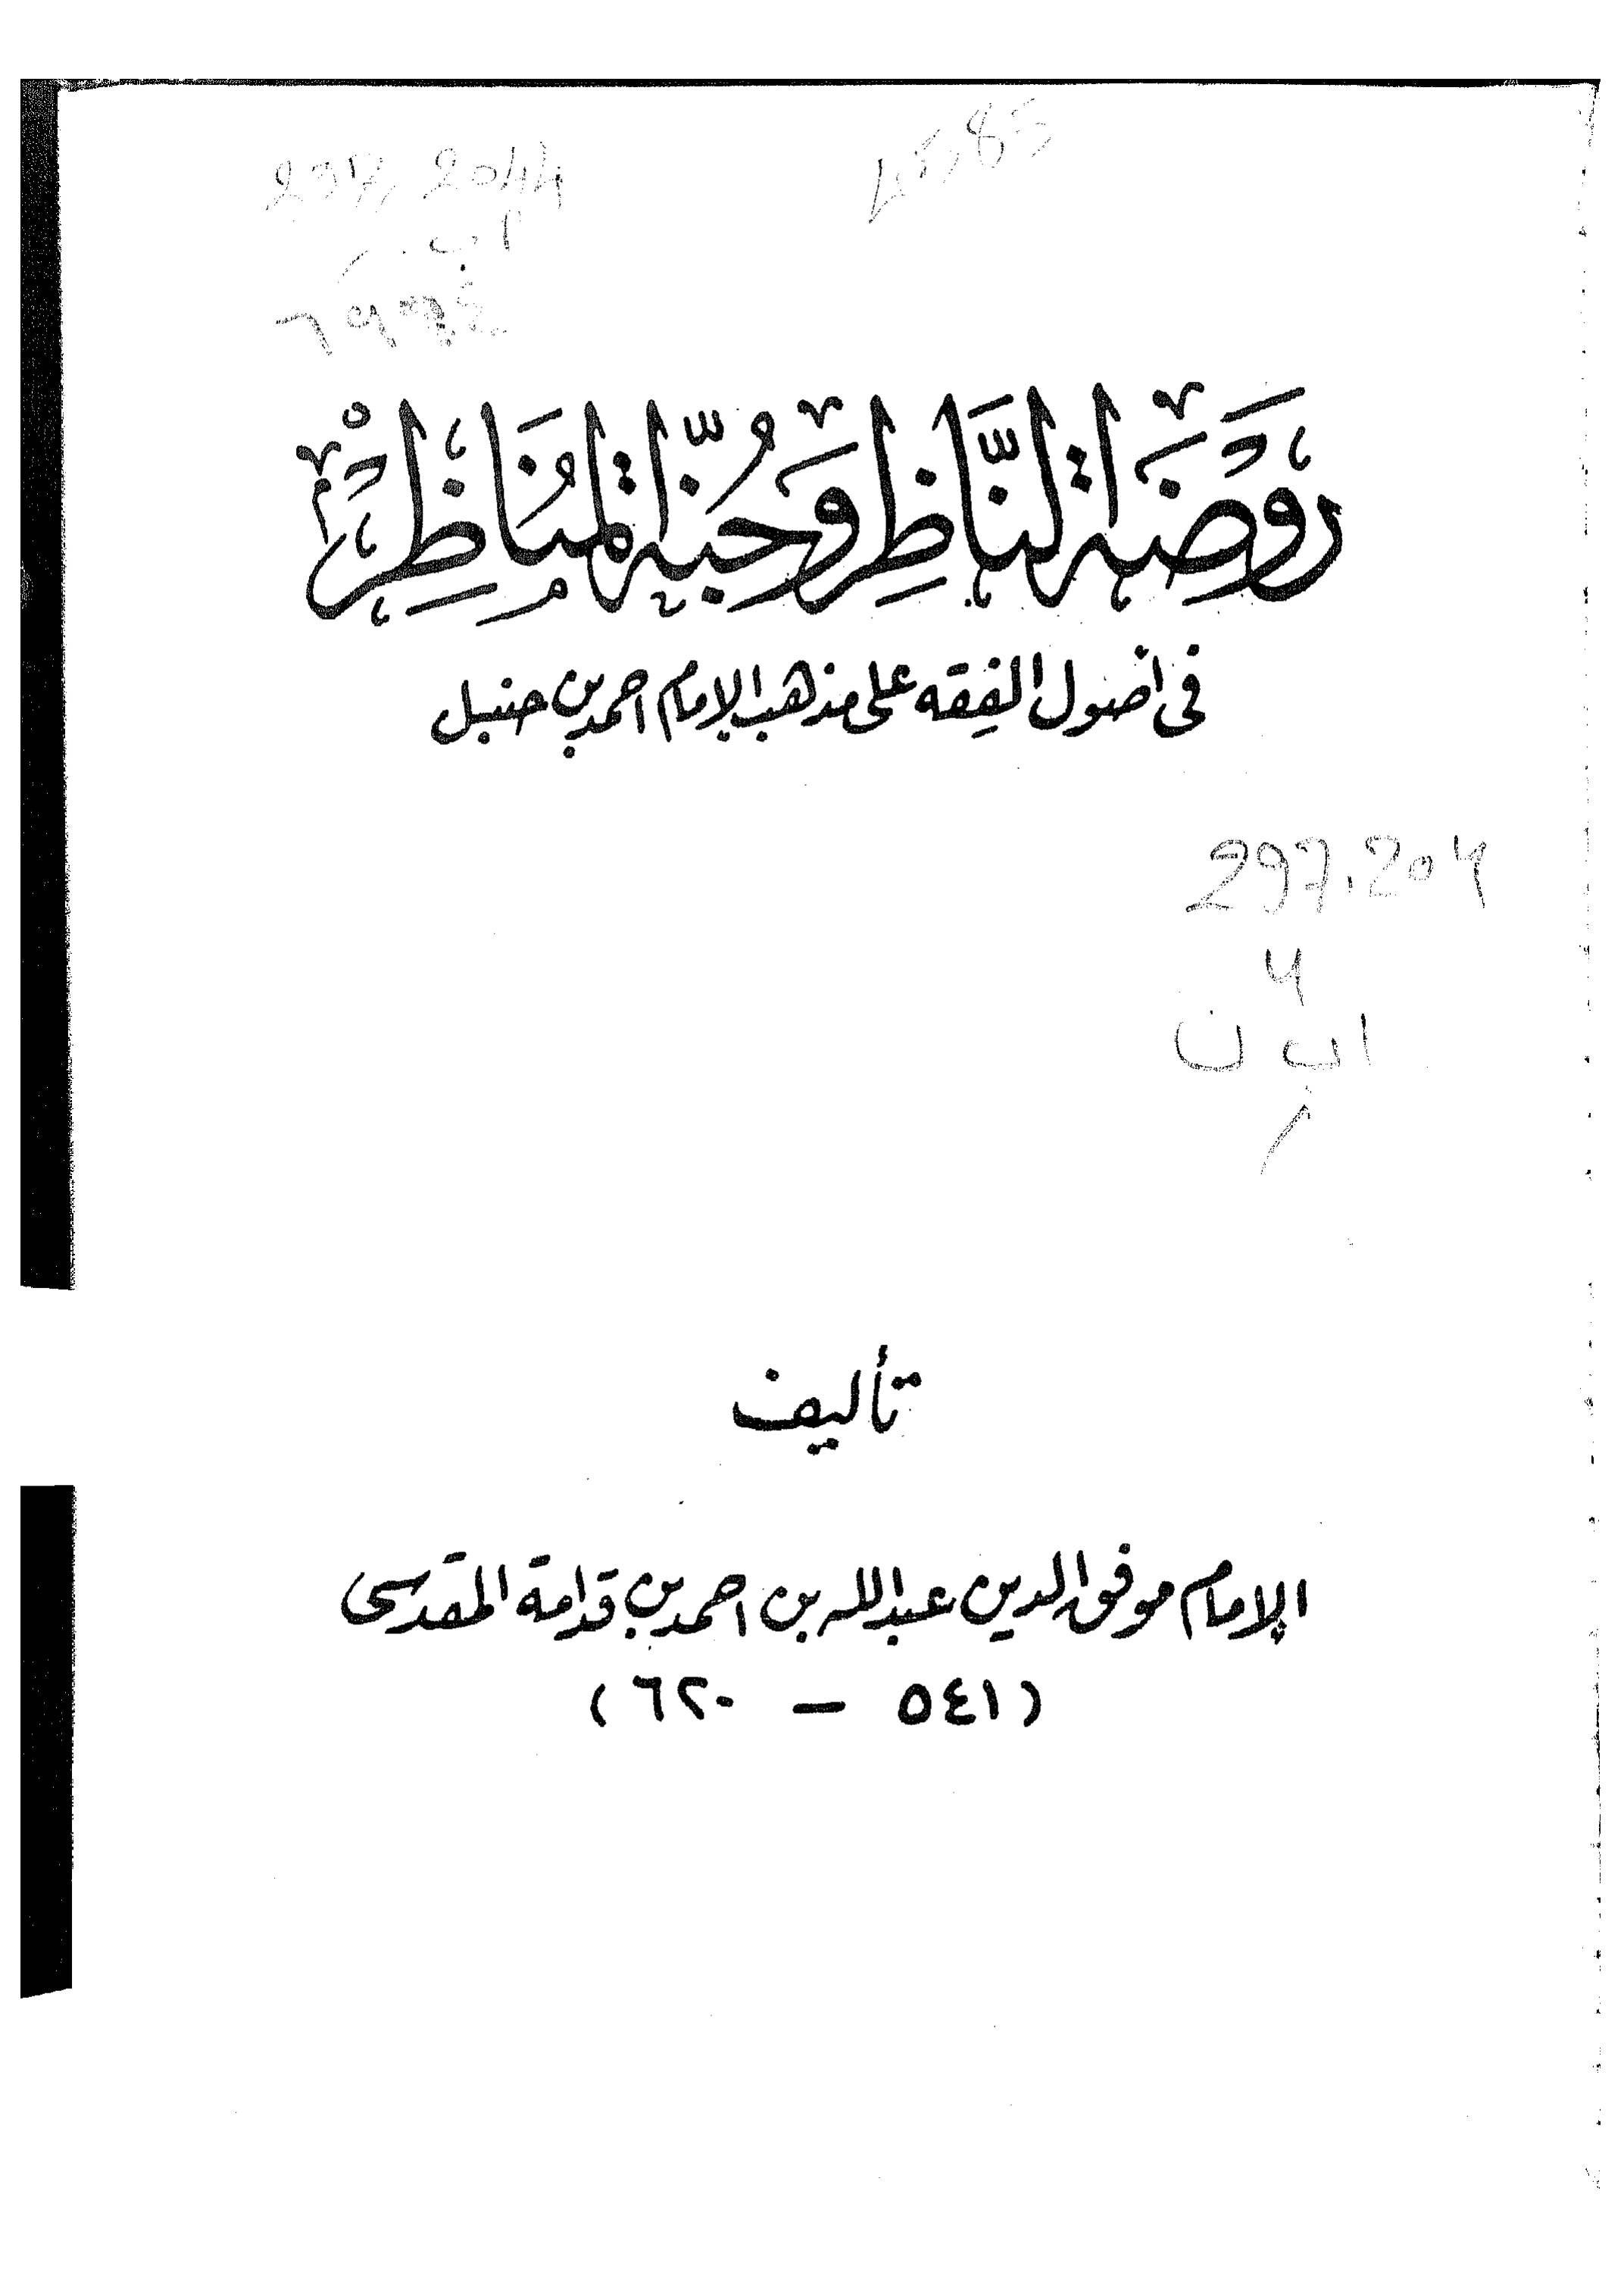 297.2044
روضة الناظر وجنة المناظر
فى اصول الفقه على مذهب الامام احمد بن حنبل
297.204
4
اب ن
ر
تأليف
الامام موفق الدين عبدالله بن احمد بن قدامة المقدسى
(٥٤١ - ٦٢٠)